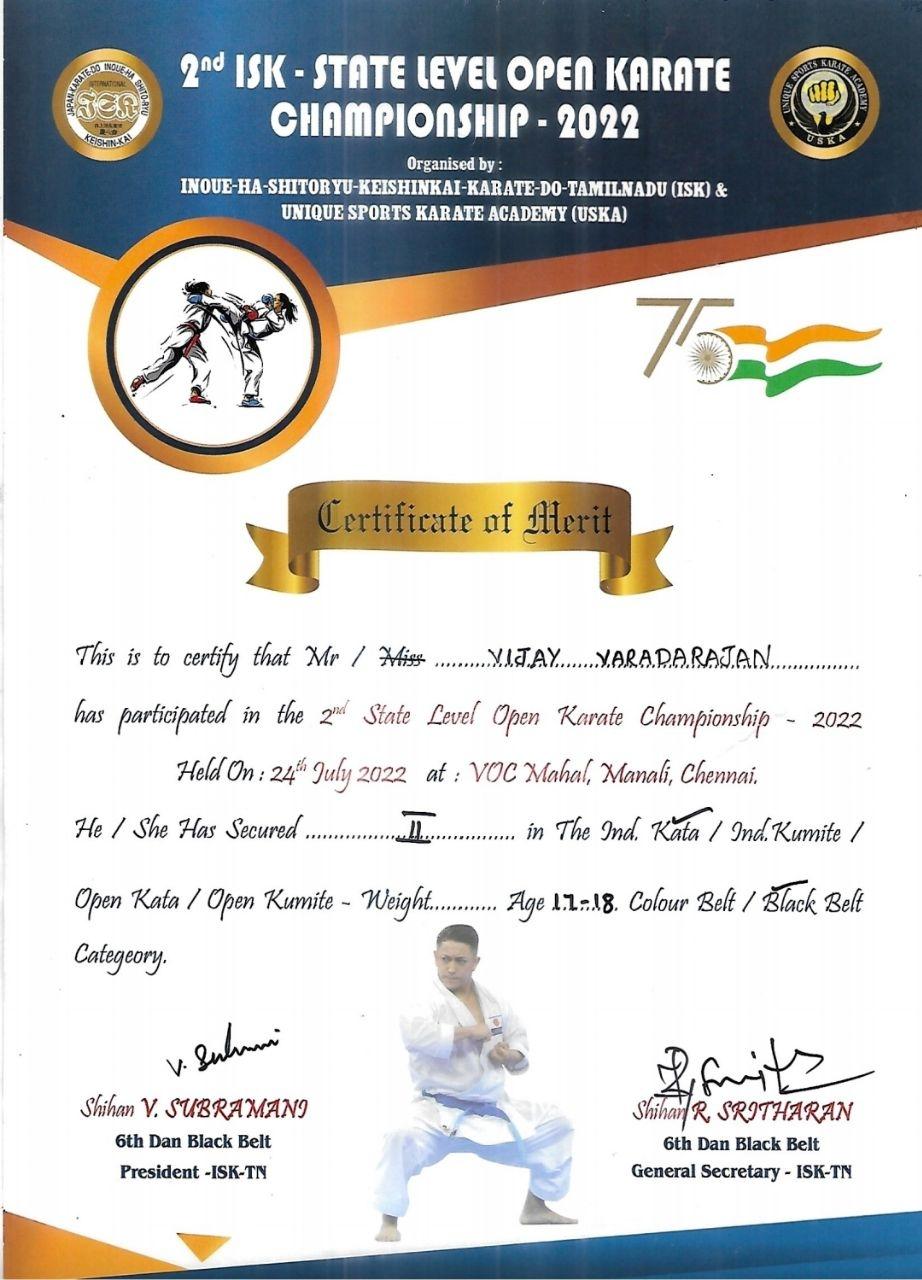 2nd ISK - STATE LEVEL OPEN KARATE
CHAMPIONSHIP - 2022
Organised by :
INOUE-HA-SHITORYU-KEISHINKAI-KARATE-DO-TAMILNADU (ISK) &
UNIQUE SPORTS KARATE ACADEMY (USKA)
JAPAN KARATE-DO INOUE-HA SHITO-RYU
INTERNATIONAL
ISK
KEISHIN-KAI
UNIQUE SPORTS KARATE ACADEMY
USKA
75
Certificate of Merit
This is to certify that Mr / Miss ..........VIJAY......VARADARAJAN................
has participated in the 2nd State Level Open Karate Championship - 2022
Held On : 24th July 2022 at : VOC Mahal, Manali, Chennai.
He / She Has Secured ..................II................. in The Ind. Kata / Ind.Kumite /
Open Kata / Open Kumite - Weight............ Age 17-18. Colour Belt / Black Belt
Categeory.
V. Subramani
Shihan V. SUBRAMANI
6th Dan Black Belt
President -ISK-TN
Shihan R. SRITHARAN
6th Dan Black Belt
General Secretary - ISK-TN